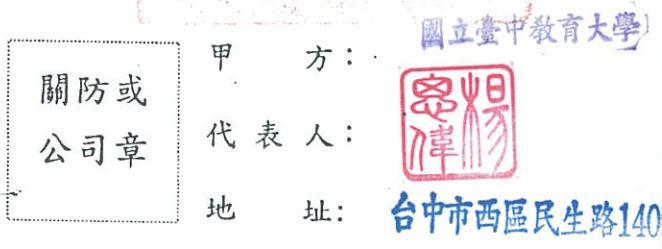 關防或
公司章
甲方：國立臺中教育大學
代表人：楊思偉
地址：台中市西區民生路140